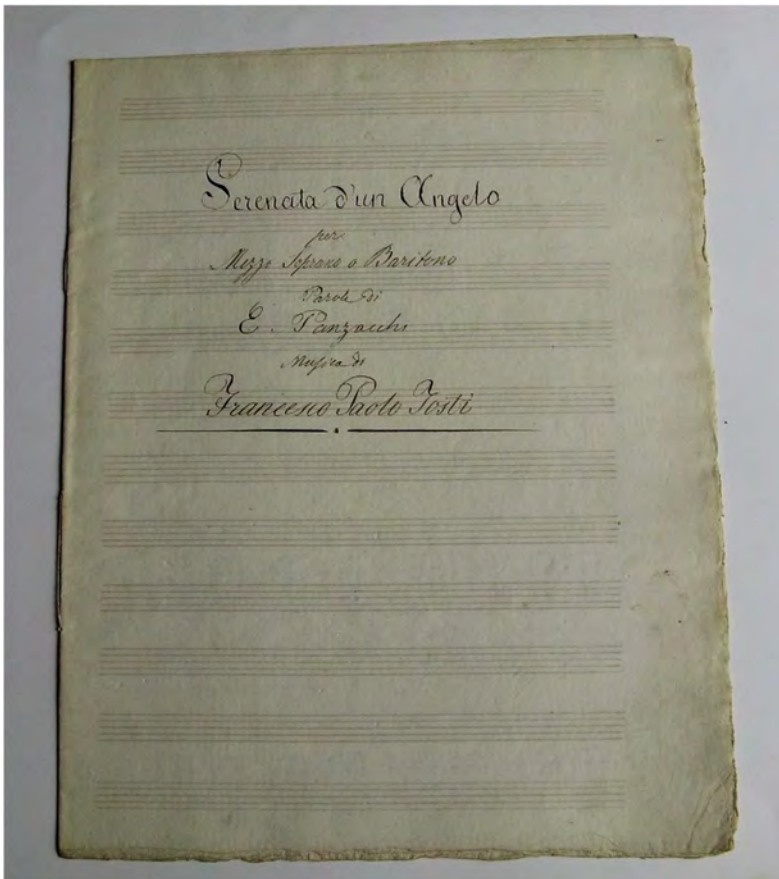 Serenata d'un Angelo
per
Mezzo Soprano o Baritono
Parole di
E. Panzacchi
Musica di
Francesco Paolo Tosti